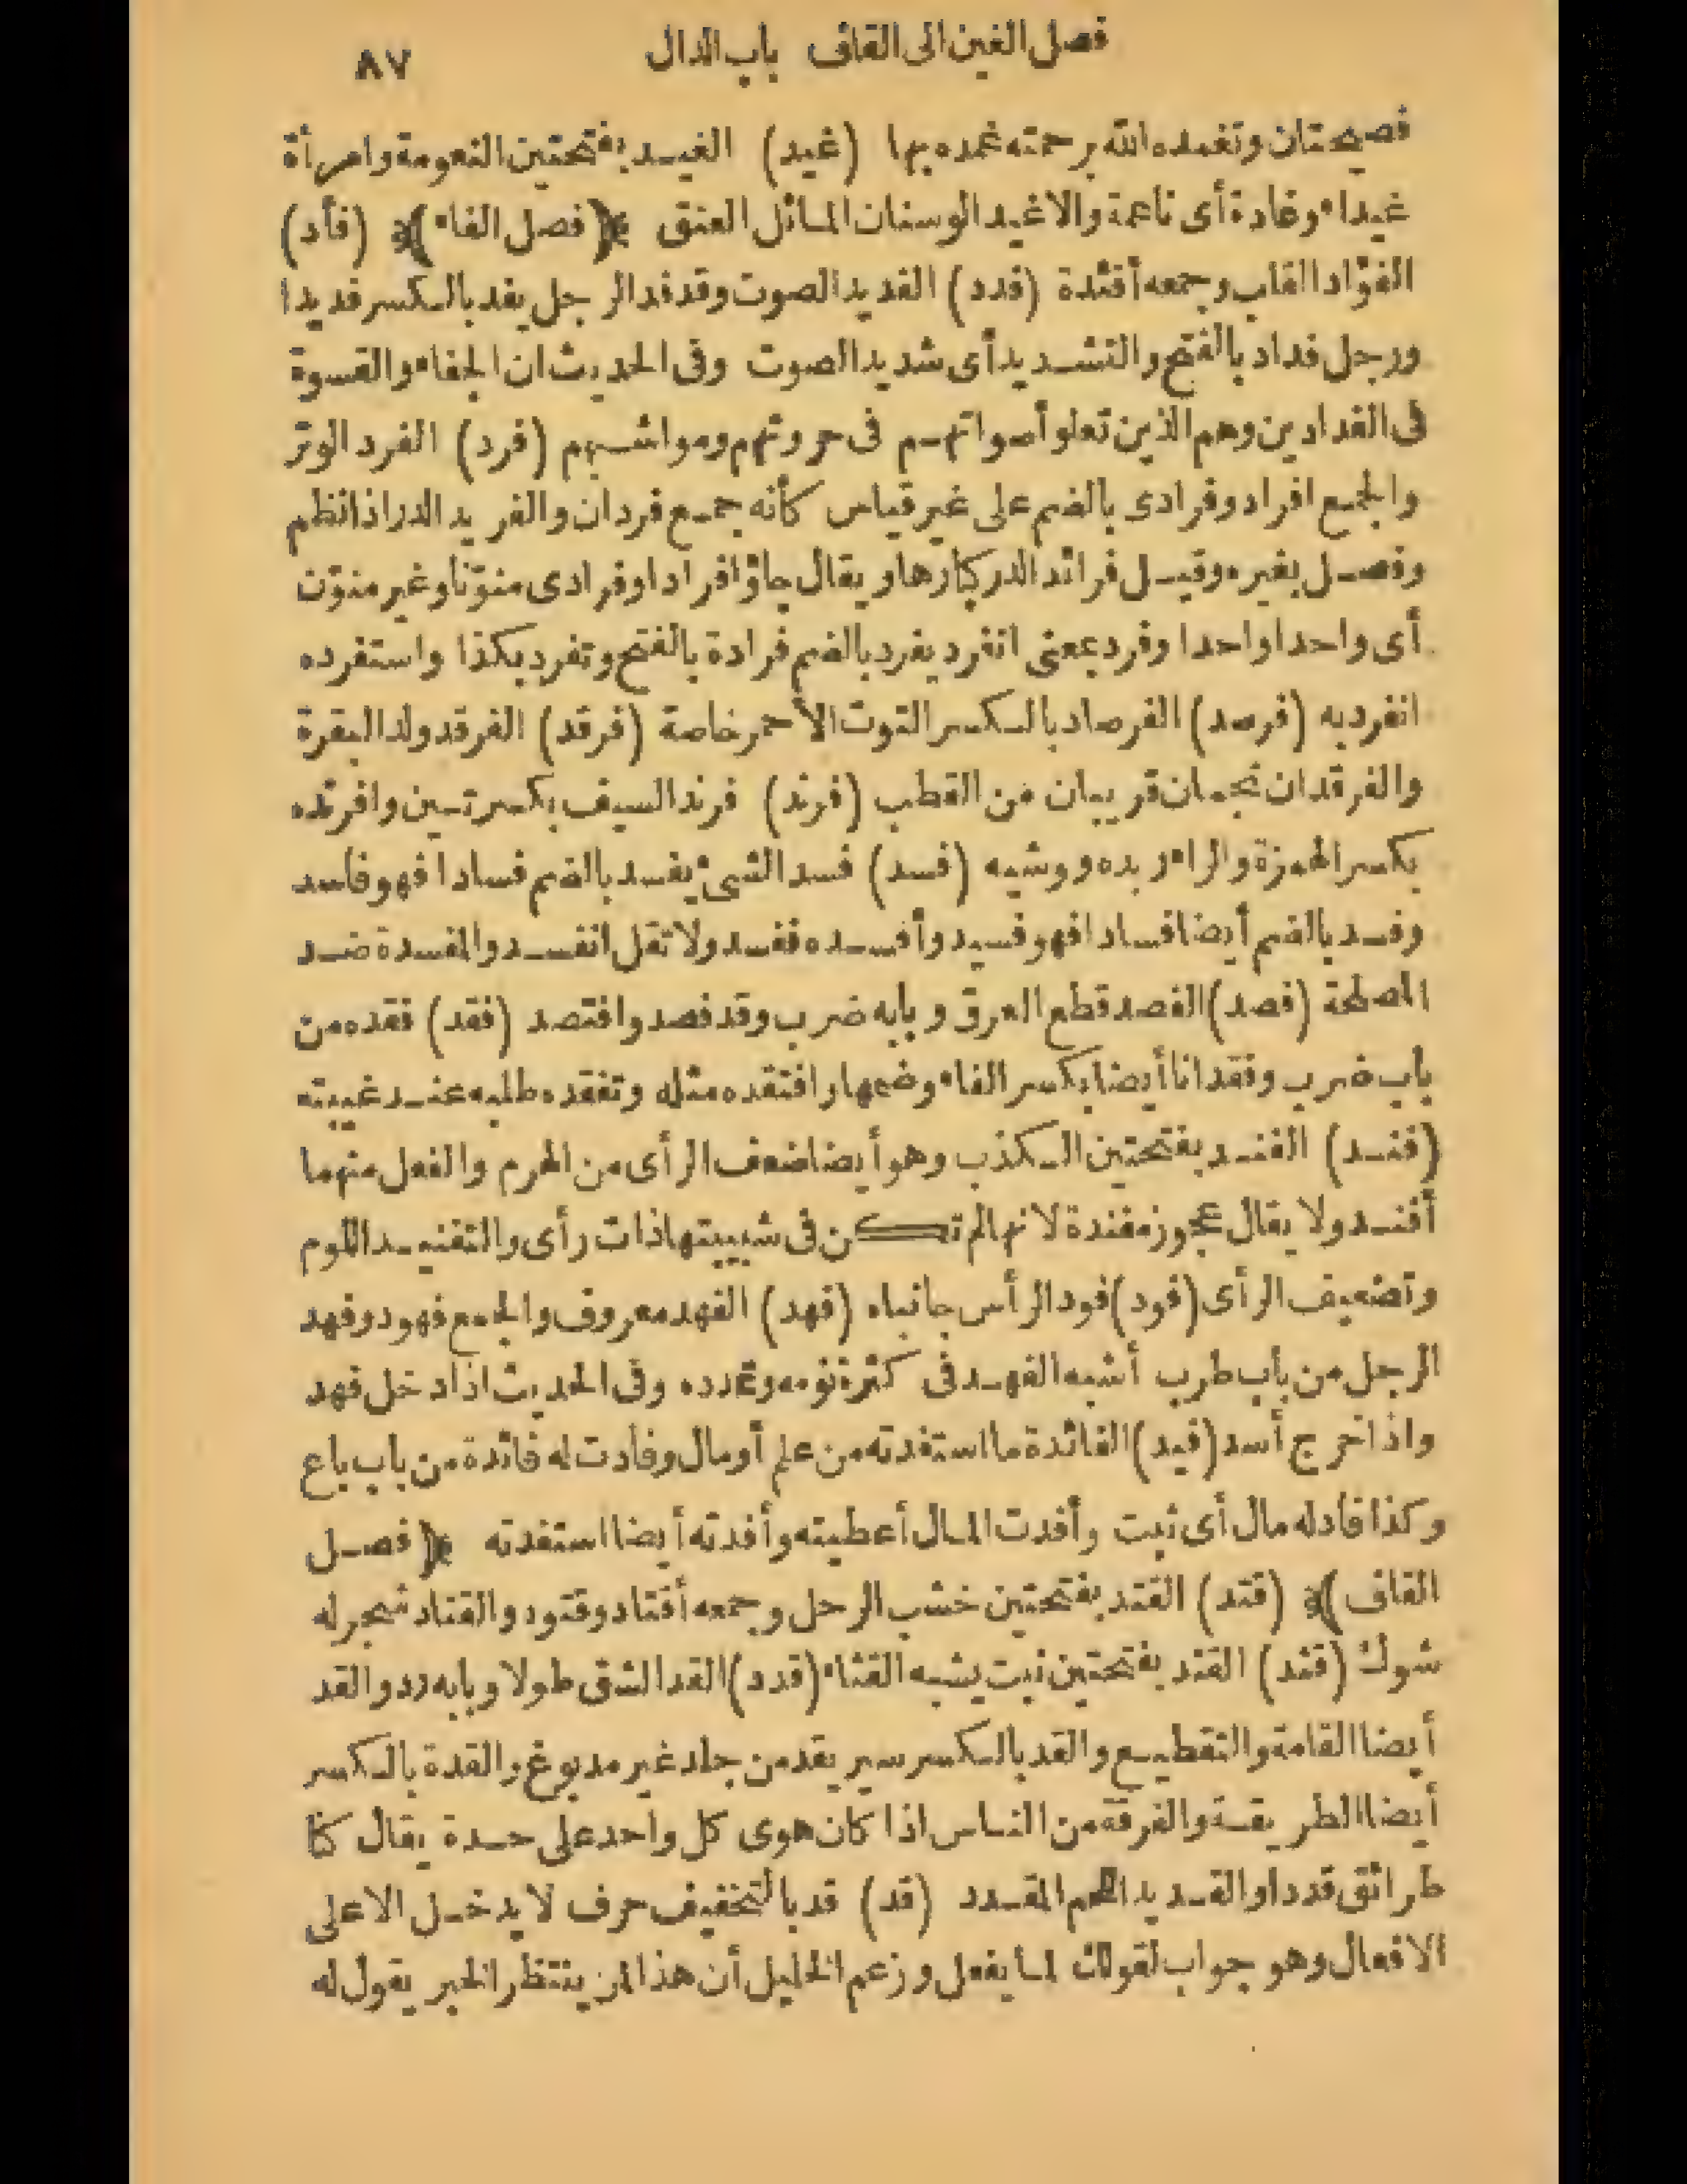 فصل الغين الى القاف باب الدال ٨٧
فصيحتان وتغمده الله برحمته غمده بها (غيد) الغيد بفتحتين النعومة وامرأة
غيداء وغادة أى ناعمة والاغيد الوسنان المائل العنق ﴿فصل الفاء﴾ (فأد)
الفؤاد القلب وجمعه أفئدة (فدد) الفديد الصوت وقد فد الرجل يفد بالكسر فديدا
ورجل فداد بالفتح والتشديد أى شديد الصوت وفى الحديث ان الجفاء والقسوة
فى الفدادين وهم الذين تعلو أصواتهم فى حروثهم ومواشيهم (فرد) الفرد الوتر
والجمع افراد وفرادى بالضم على غير قياس كأنه جمع فردان والفريد الدر اذا نظم
وفصل بغيره وقيل فرائد الدر كبارها ويقال جاؤا فرادا وفرادى منوّنا وغير منوّن
أى واحدا واحدا وفرد بمعنى انفرد يفرد بالضم فرادة بالفتح وتفرد بكذا واستفرده
انفرد به (فرصد) الفرصاد بالكسر التوت الأحمر خاصة (فرقد) الفرقد ولد البقرة
والفرقدان نجمان قريبان من القطب (فرند) فرند السيف بكسرتين وافرنده
بكسر الهمزة والراء ربده ووشيه (فسد) فسد الشىء يفسد بالضم فسادا فهو فاسد
وفسد بالضم أيضا فسادا فهو فسيد وأفسده ففسد ولا تقل انفسد والمفسدة ضد
المصلحة (فصد) الفصد قطع العرق وبابه ضرب وقد فصد وافتصد (فقد) فقده من
باب ضرب وفقدانا أيضا بكسر الفاء وضمها وافتقده مثله وتفقده طلبه عند غيبته
(فند) الفند بفتحتين الكذب وهو أيضا ضعف الرأى من الهرم والفعل منهما
أفند ولا يقال عجوز مفندة لانها لم تكن فى شبيبتها ذات رأى والتفنيد اللوم
وتضعيف الرأى (فود) فود الرأس جانباه (فهد) الفهد معروف والجمع فهود وفهد
الرجل من باب طرب أشبه الفهد فى كثرة نومه وتمدده وفى الحديث اذا دخل فهد
واذا خرج أسد (فيد) الفائدة ما استفدته من علم أو مال وفادت له فائدة من باب باع
وكذا فاد له مال أى ثبت وأفدت المال أعطيته وأفدته أيضا استفدته ﴿فصل
القاف﴾ (قتد) القتد بفتحتين خشب الرحل وجمعه أقتاد وقتود والقتاد شجر له
شوك (قثد) القثد بفتحتين نبت يشبه القثاء (قدد) القد الشق طولا وبابه رد والقد
أيضا القامة والتقطيع والقد بالكسر سير يقد من جلد غير مدبوغ والقدة بالكسر
أيضا الطريقة والفرقة من الناس اذا كان هوى كل واحد على حدة يقال كنا
طرائق قددا والقديد اللحم المقدد (قد) قد بالتخفيف حرف لا يدخل الا على
الافعال وهو جواب لقولك لما يفعل وزعم الخليل أن هذا لمن ينتظر الخبر يقول له